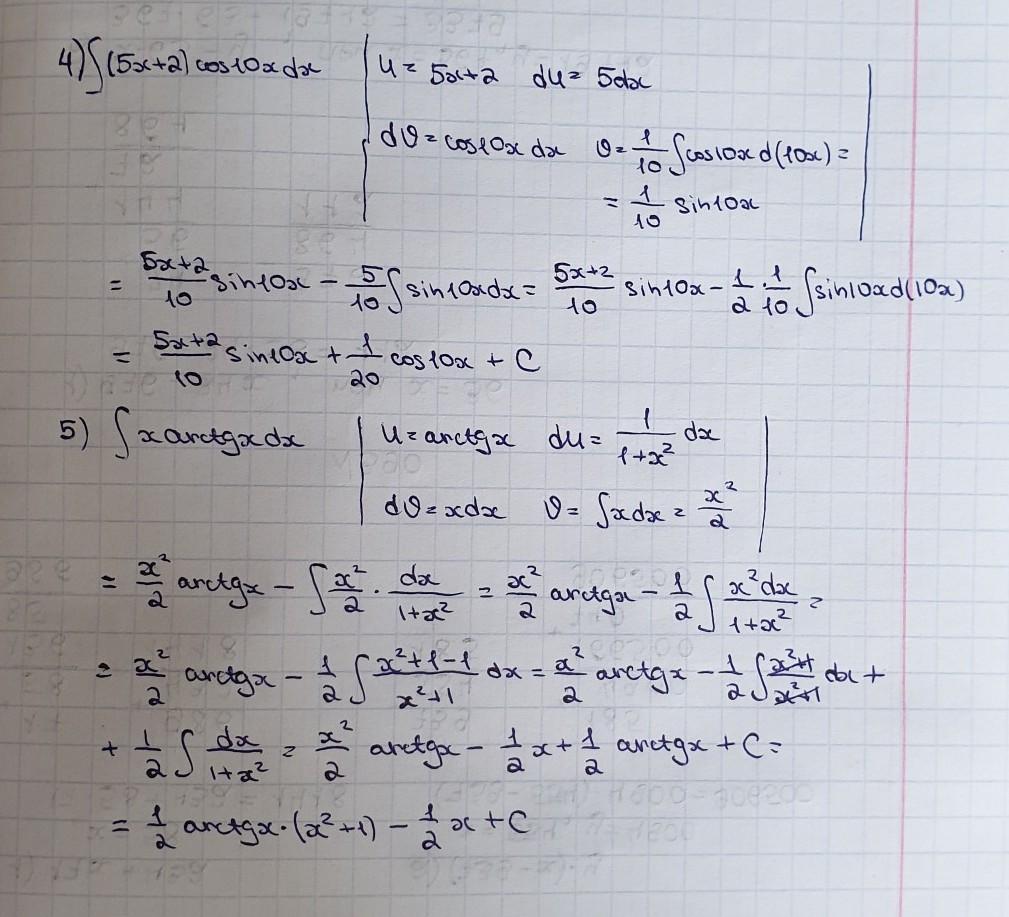 4) ∫(5x+2) cos10x dx | u = 5x+2 du = 5dx |
dϑ = cos10x dx ϑ = 1/10 ∫cos10x d(10x) =
= 1/10 sin10x
= (5x+2)/10 sin10x − 5/10 ∫sin10x dx = (5x+2)/10 sin10x − 1/2 · 1/10 ∫sin10x d(10x)
= (5x+2)/10 sin10x + 1/20 cos10x + C
5) ∫x arctgx dx | u = arctgx du = 1/(1+x²) dx |
dϑ = xdx ϑ = ∫xdx = x²/2
= x²/2 arctgx − ∫ x²/2 · dx/(1+x²) = x²/2 arctgx − 1/2 ∫ x²dx/(1+x²) =
= x²/2 arctgx − 1/2 ∫ (x²+1−1)/(x²+1) dx = x²/2 arctgx − 1/2 ∫ (x²+1)/(x²+1) dx +
+ 1/2 ∫ dx/(1+x²) = x²/2 arctgx − 1/2 x + 1/2 arctgx + C =
= 1/2 arctgx · (x²+1) − 1/2 x + C